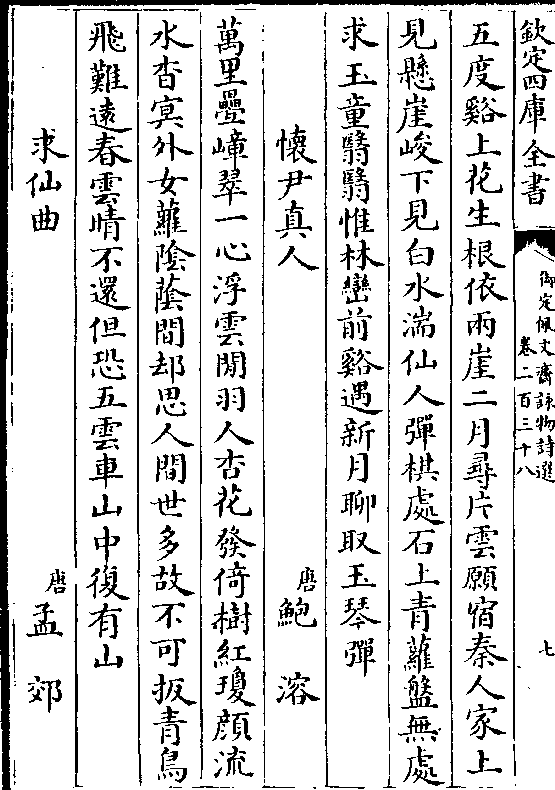 欽定四庫全書
御定佩文齋詠物詩選
卷二百三十八
七
五度谿上花生根依兩崖二月尋片雲願宿秦人家上
見懸崖峻下見白水湍仙人彈棋處石上青蘿盤無處
求玉童翳翳惟林巒前谿遇新月聊取玉琴彈
懷尹真人 唐 鮑溶
萬里疊嶂翠一心浮雲閒羽人杏花發倚樹紅瓊顏流
水杳冥外女蘿陰蔭間却思人間世多故不可扳青鳥
飛難遠春雲晴不還但恐五雲車山中復有山
求仙曲 唐 孟郊